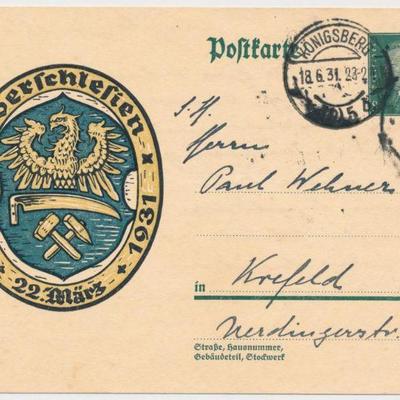 Oberschlesien
22. März
1931
Postkarte
KÖNIGSBERG
18.6.31. 23-2
5 b
Herrn
Paul Wehner
in Krefeld
Uerdingerstr.
Straße, Hausnummer,
Gebäudeteil, Stockwerk